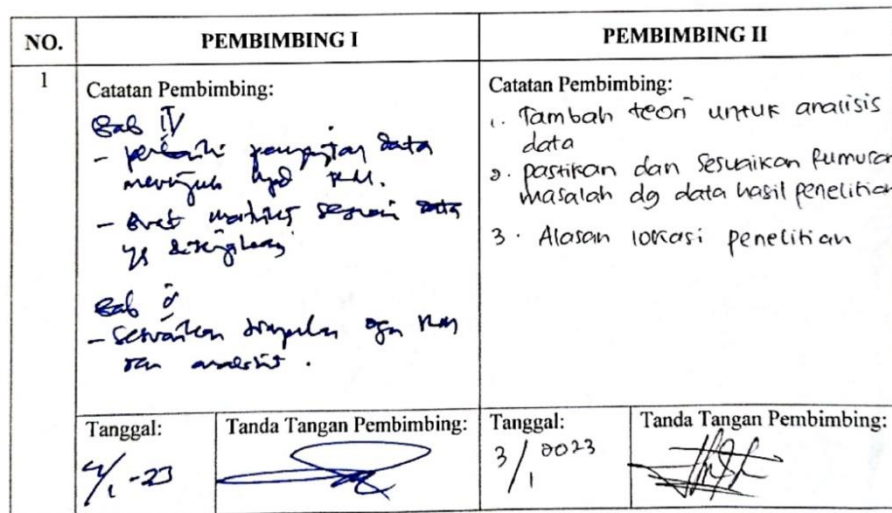 NO.
PEMBIMBING I
PEMBIMBING II
1
Catatan Pembimbing:
Bab IV
- perbaiki penyajian data
merujuk kpd RM.
- Buat matriks sesuai data
yg
Bab
- Sesuaikan simpulan dgn RM
dan analisis.
Catatan Pembimbing:
1. Tambah teori untuk analisis
data
2. pastikan dan sesuaikan rumusan
masalah dg data hasil penelitian
3. Alasan lokasi penelitian
Tanggal:
4/1-23
Tanda Tangan Pembimbing:
Tanggal:
3/1 2023
Tanda Tangan Pembimbing: